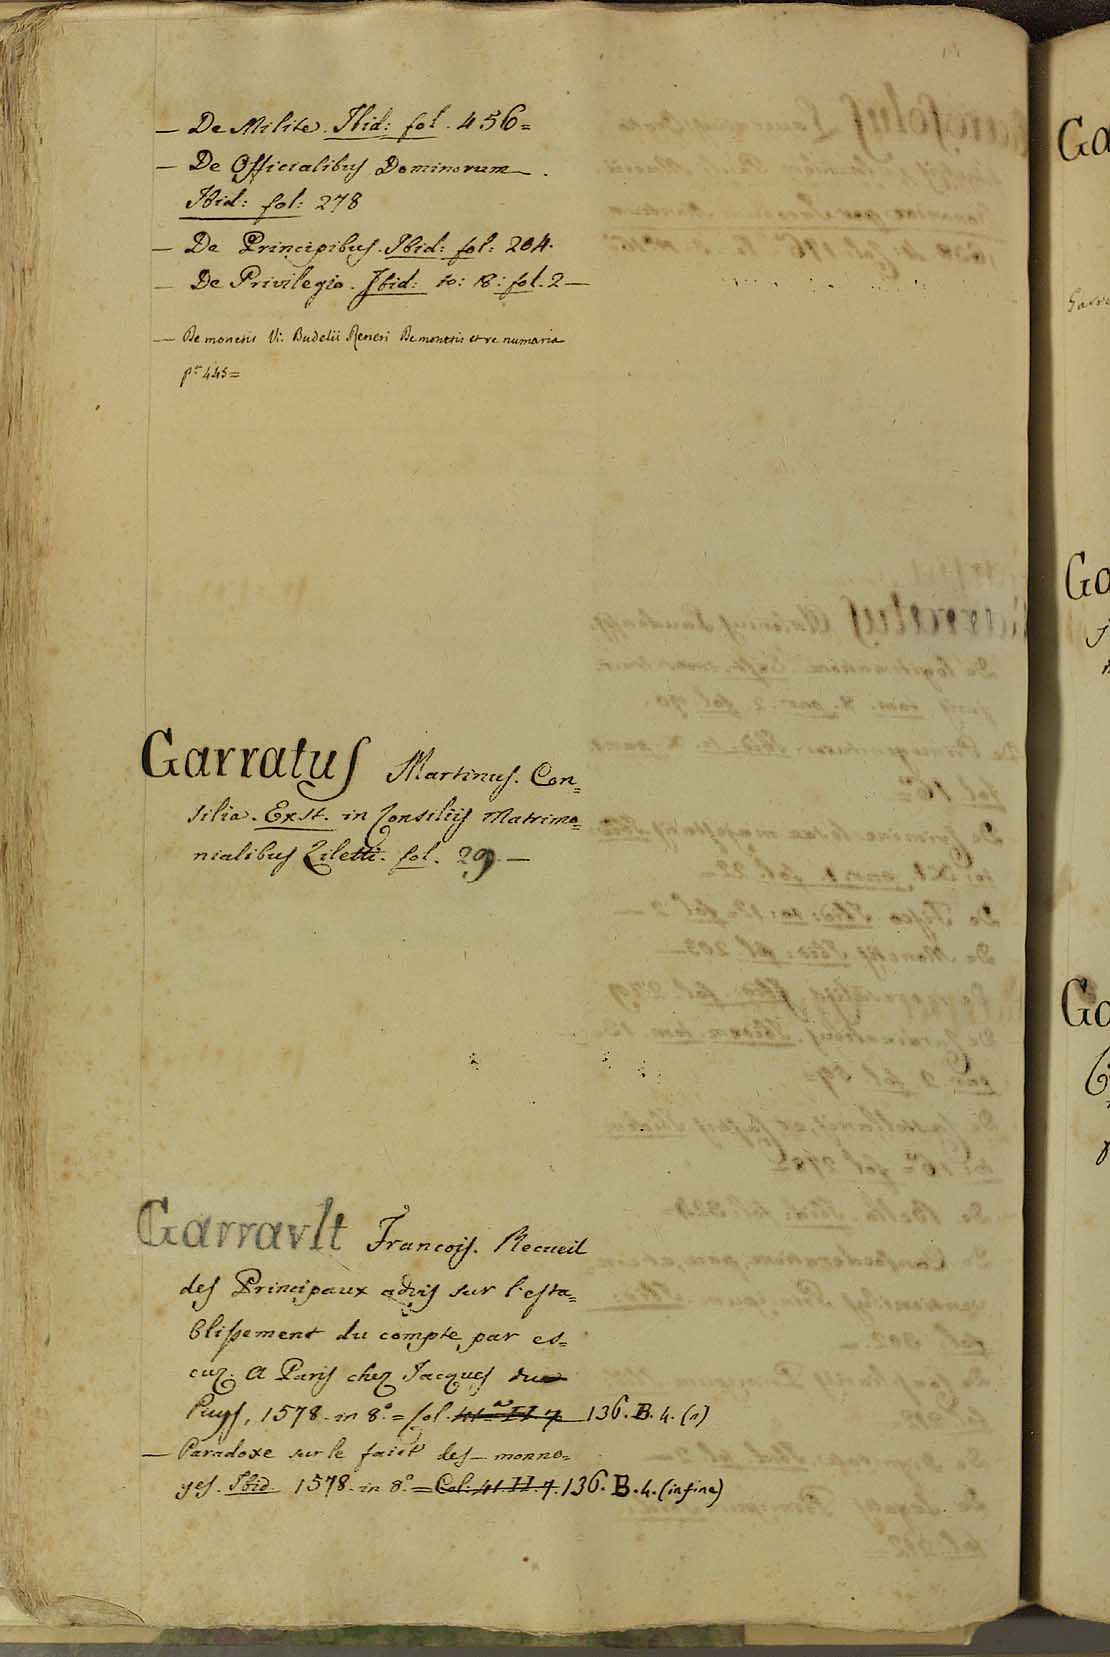 — De Milite. Ibid: fol. 456=
— De Officialibus Dominorum.
Ibid: fol: 278
— De Principibus. Ibid: fol: 204.
— De Privilegio. Ibid: to: 18: fol. 2—
— De monetis Vi. Budelii Reneri De monetis et re numaria
pr 445=
Garratus Martinus. Con=
silia. Exst. in Consiliis Matrimo=
nialibus Ziletti. fol. 29.—
Garravlt Francois. Recueil
des Principaux advis sur l'esta=
blissement du compte par es=
cuz. A Paris chez Jacques du
Puys, 1578. in 8.°= Col. 41 II 7 136. B. 4. (n)
— Paradoxe sur le faict des monno=
yes. Ibid. 1578. in 8.°= Col: 41 II. 7. 136. B. 4. (in fine)
Ga
Ga
Ga